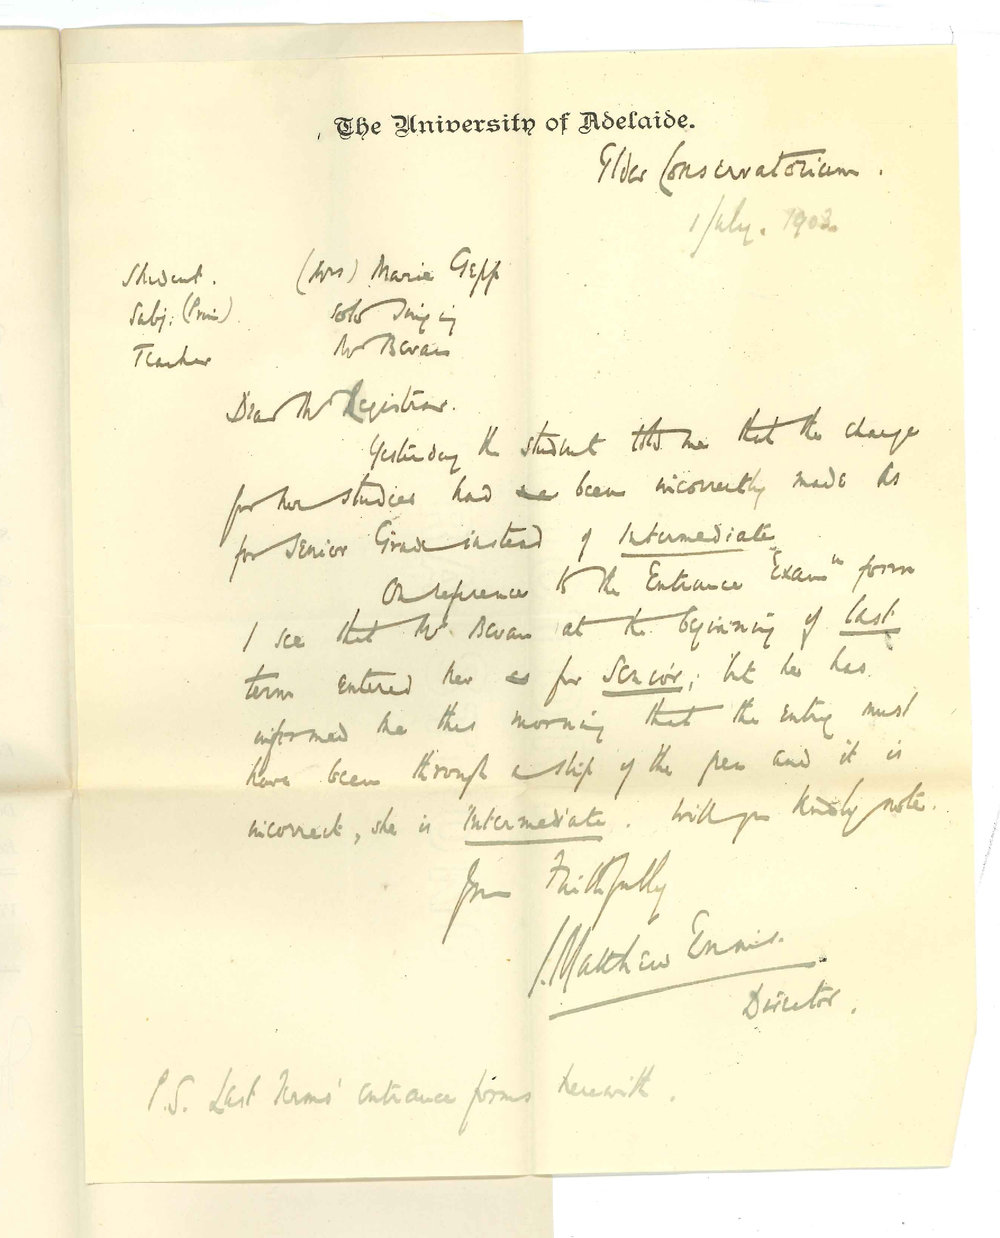 The University of Adelaide.
Elder Conservatorium.
1 July. 1903.
Student. (Mrs) Marie Gepp
Subj: (Prin) Solo Singing
Teacher Mr Bevan
Dear Mr Registrar.
Yesterday the student told me that the charge
for her studies had been incorrectly made as
for Senior Grade instead of Intermediate
On reference to the Entrance "Exam" form
I see that Mr Bevan at the beginning of last
term entered her as for Senior; but he has
informed me this morning that the entry must
have been through a slip of the pen and it is
incorrect, she is Intermediate. Will you kindly note.
Yours Faithfully
J. Matthew Ennis.
Director.
P.S. Last Terms' entrance forms herewith.